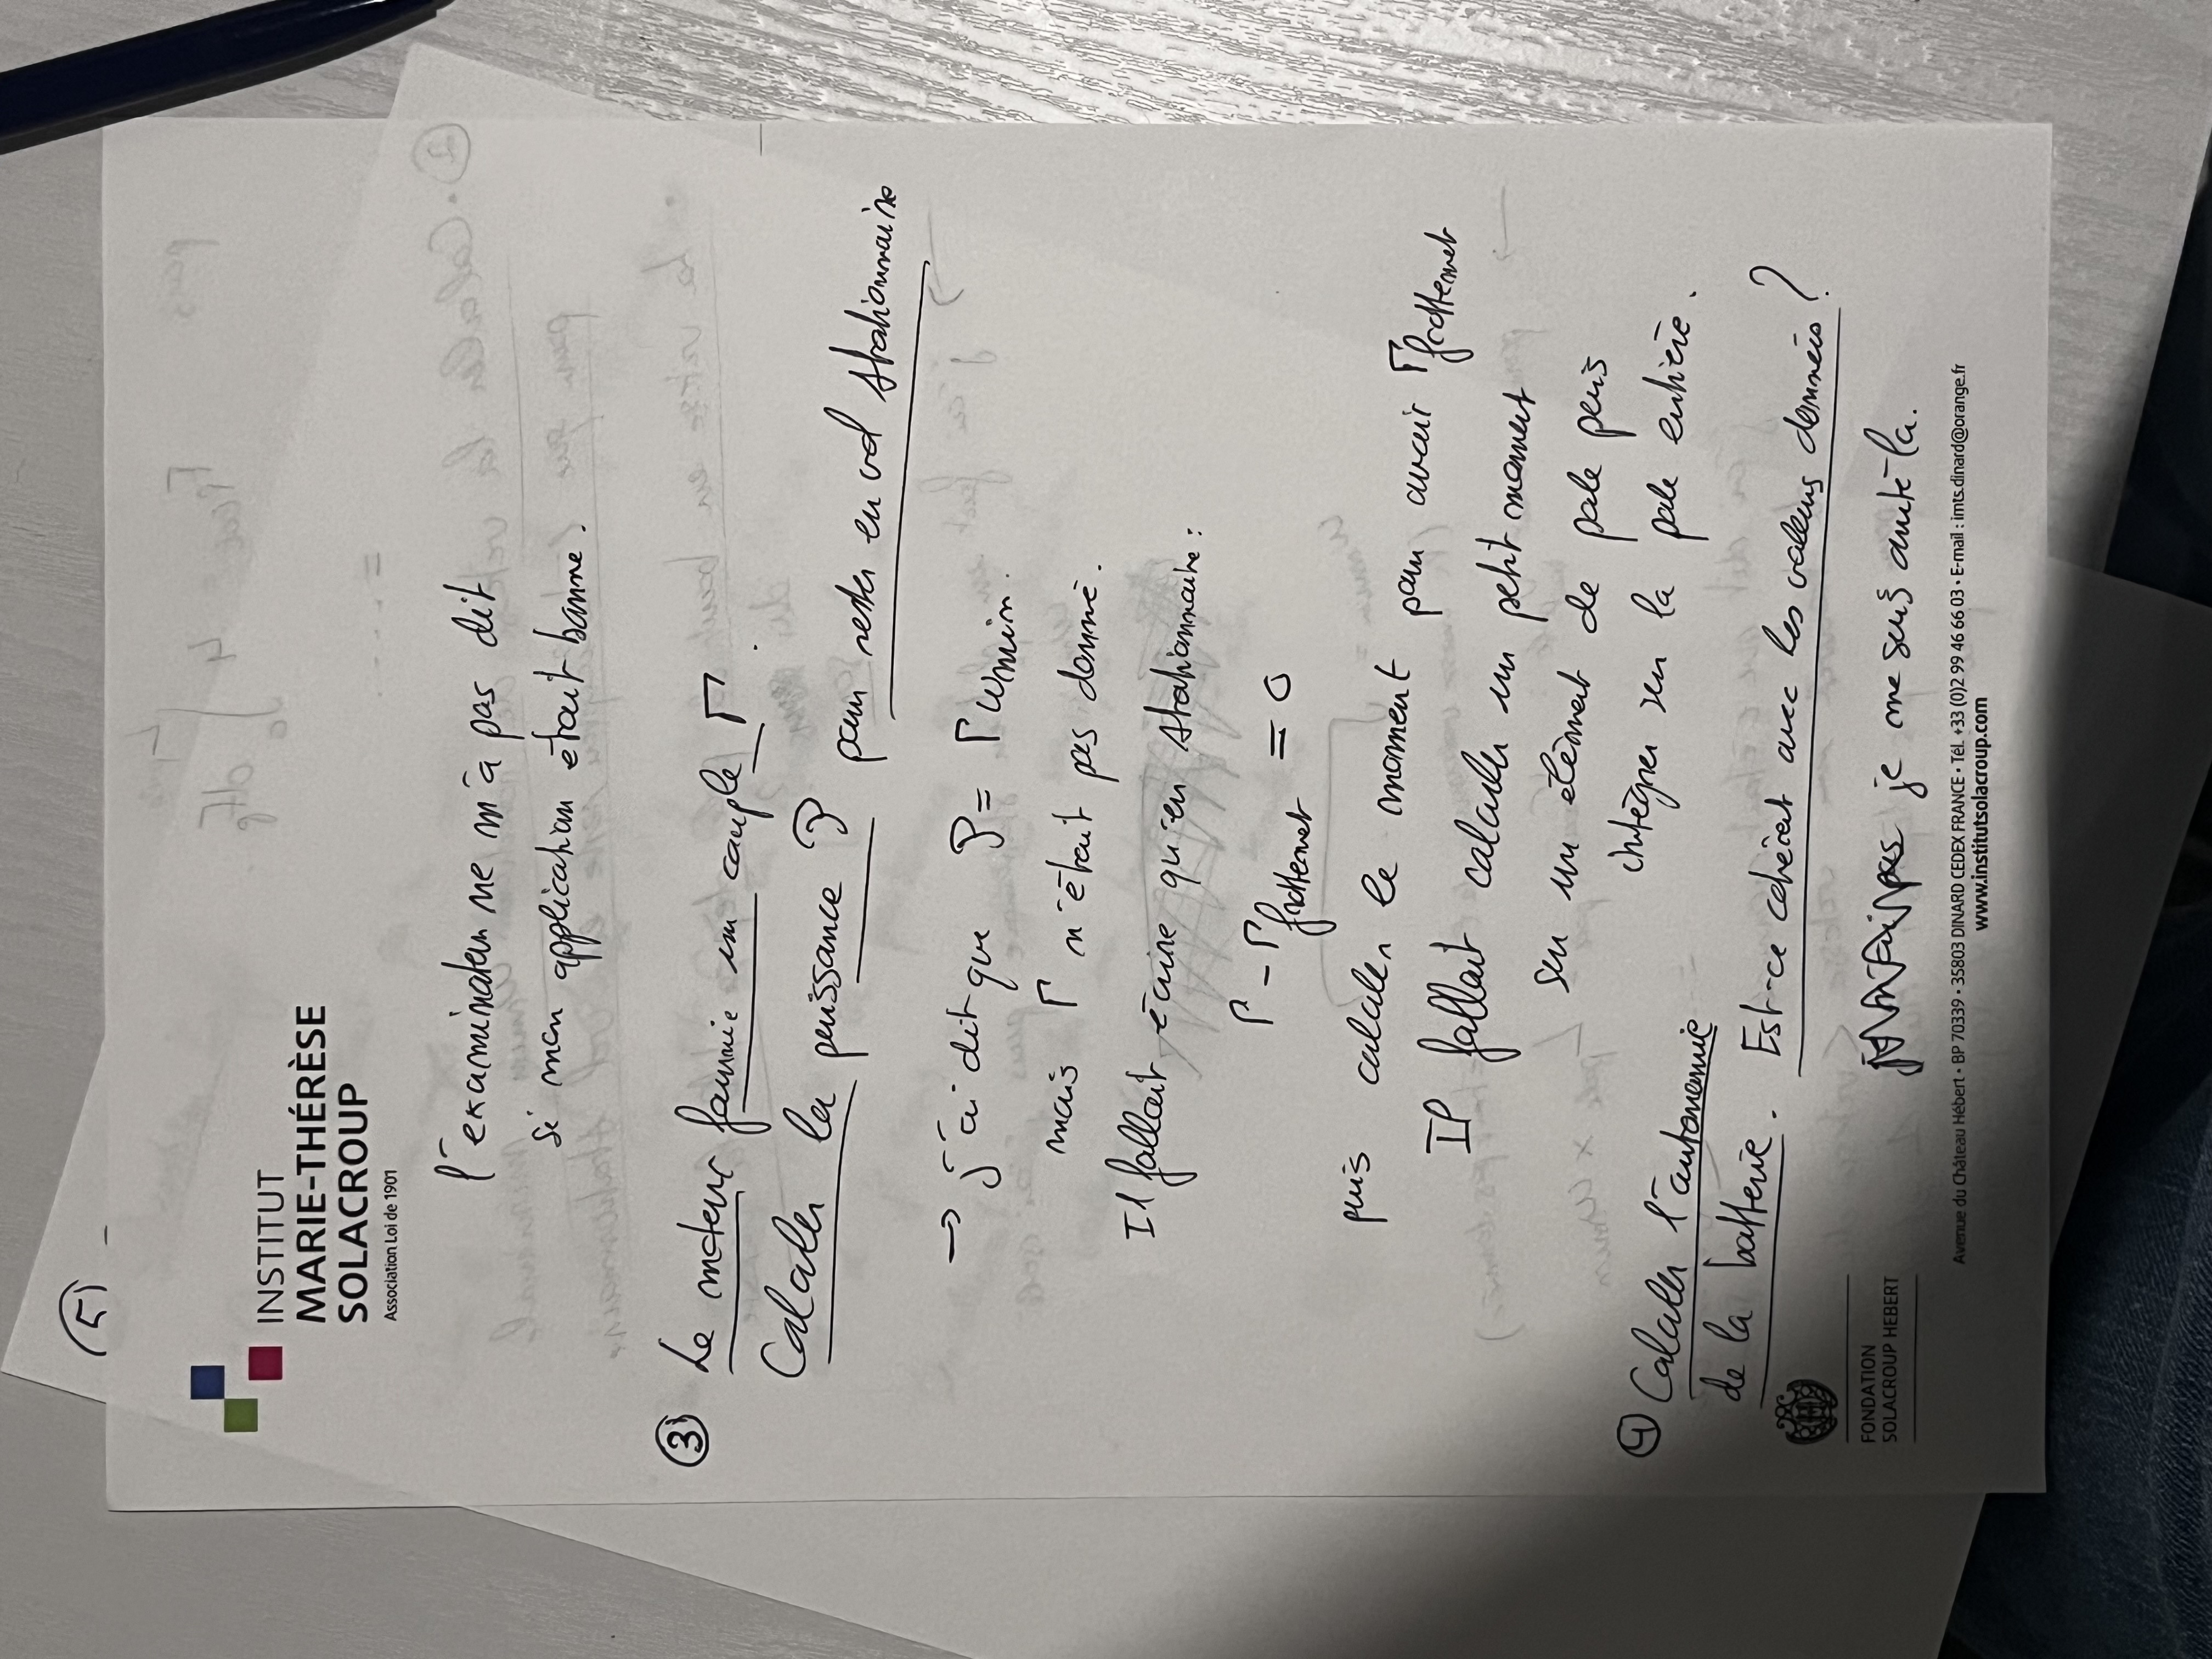 ⑤
INSTITUT
MARIE-THÉRÈSE
SOLACROUP
Association Loi de 1901
l'examinateur ne m'a pas dit
si mon application était bonne.
③ Le moteur fournie un couple Γ.
Calculer la puissance P pour rester en vol stationnaire
→ j'ai dit que P = Γ ωmin.
mais Γ n'était pas donné.
Il fallait écrire qu'en stationnaire :
Γ - Γfrottement = 0
puis calculer le moment pour avoir Γfrottement
Il fallait calculer un petit moment
sur un élément de pale puis
intégrer sur la pale entière.
④ Calculer l'autonomie
de la batterie. Est-ce cohérent avec les valeurs données ?
je me suis arrêté là.
FONDATION
SOLACROUP HEBERT
Avenue du Château Hébert • BP 70339 • 35803 DINARD CEDEX FRANCE • Tél. +33 (0)2 99 46 66 03 • E-mail : imts.dinard@orange.fr
www.institutsolacroup.com